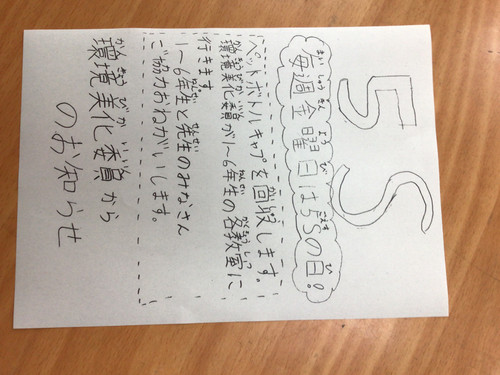 5S
毎週金曜日は5Sの日!
ペットボトルキャプを回収します。
環境美化委員が1〜6年生の各教室に
行きます
1〜6年生と先生のみなさん
ご協力おねがいします。
環境美化委員から
のお知らせ